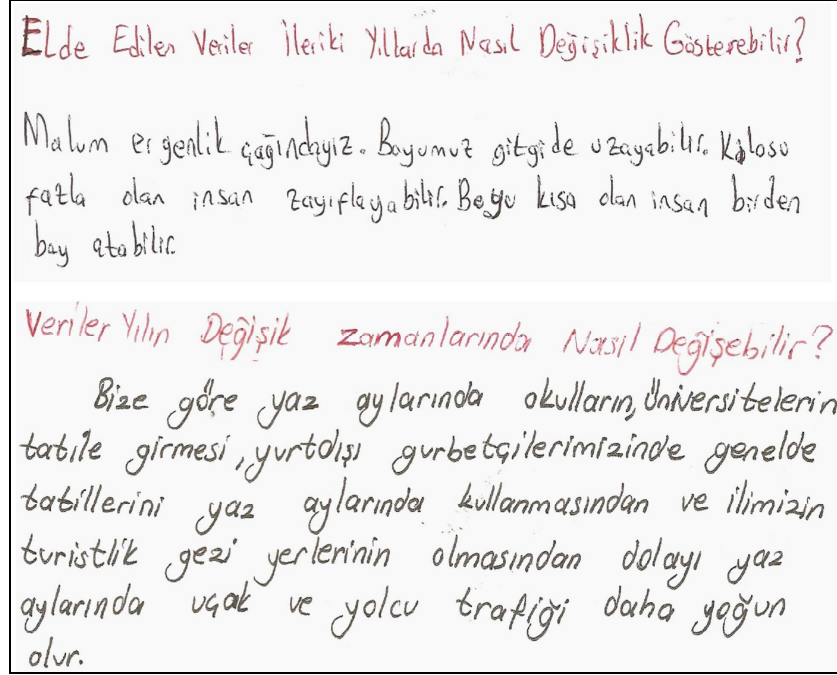 Elde Edilen Veriler İleriki Yıllarda Nasıl Değişiklik Gösterebilir?
Malum ergenlik çağındayız. Boyumuz gitgide uzayabilir. Kilosu
fazla olan insan zayıflayabilir. Boyu kısa olan insan birden
boy atabilir.
Veriler Yılın Değişik zamanlarında Nasıl Değişebilir?
Bize göre yaz aylarında okulların, üniversitelerin
tatile girmesi, yurtdışı gurbetçilerimizinde genelde
tatillerini yaz aylarında kullanmasından ve ilimizin
turistlik gezi yerlerinin olmasından dolayı yaz
aylarında uçak ve yolcu trafiği daha yoğun
olur.